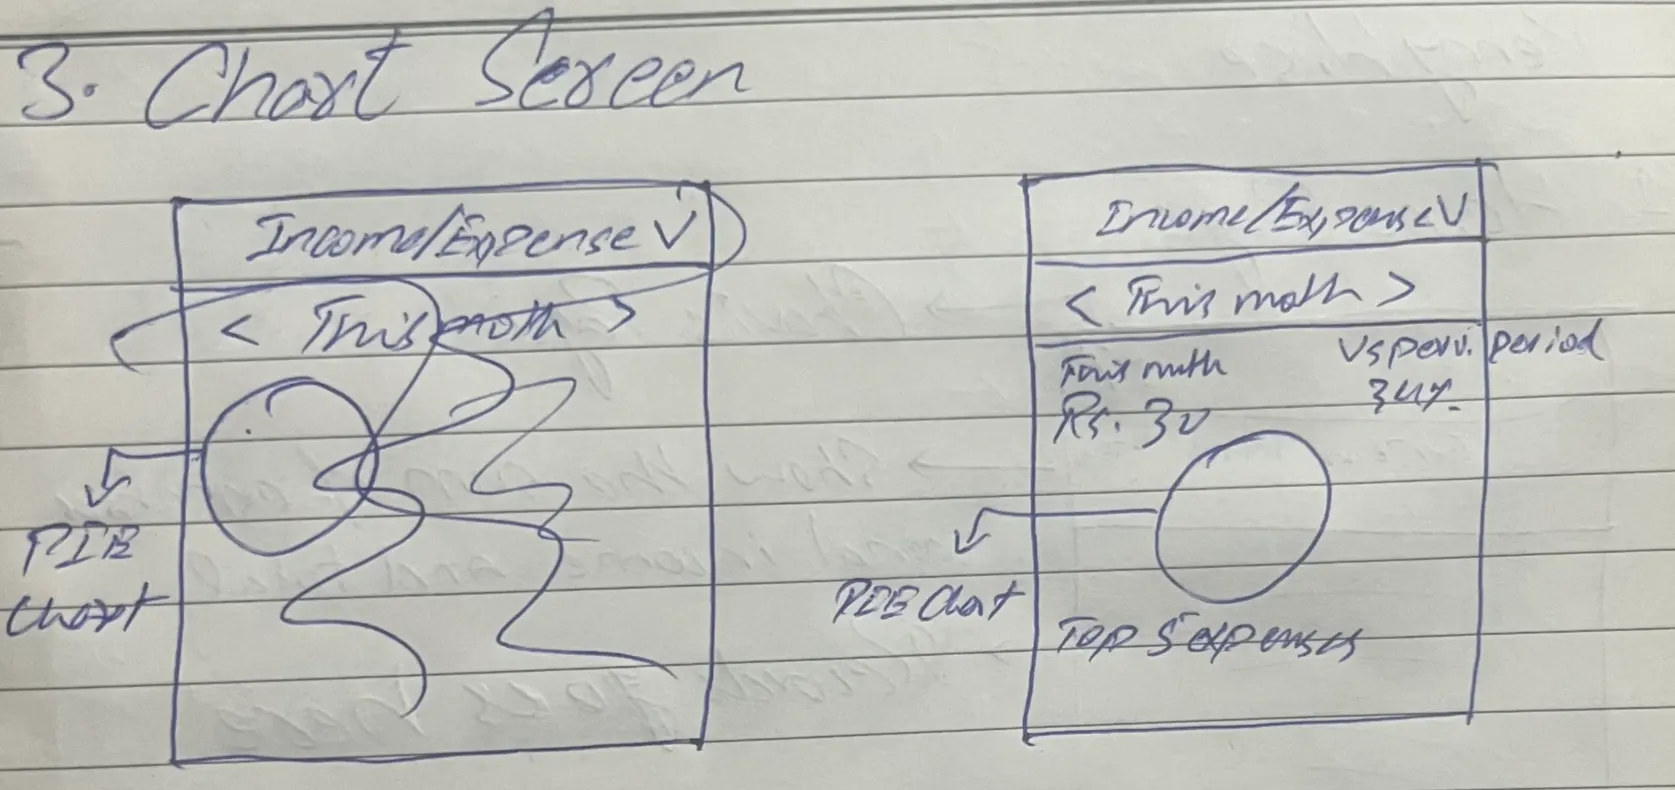 3. Chart Screen
Income/Expense V
< This moth >
PIE
Chart
Income/Expense V
< This moth >
This muth
Vs perv. period
Rs. 30
34%.
PIE Chart
Top 5 expenses